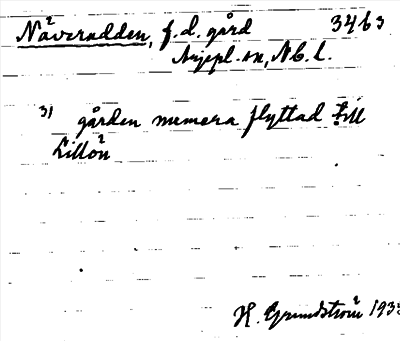 Näverudden, f.d. gård 3463
Arjepl. sn, Nb. l.
31 gården numera flyttad till
Lillön
H. Grundström 193